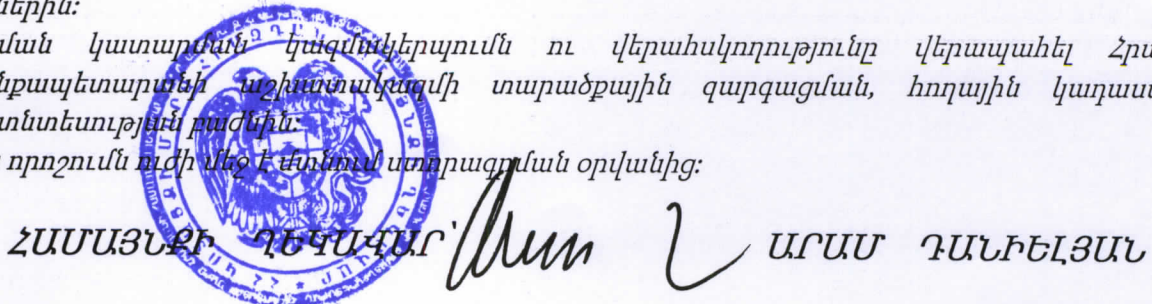 ներին:
ման կատարման կազմակերպումն ու վերահսկողությունը վերապահել Հրա
նքապետարանի աշխատակազմի տարածքային զարգացման, հողային կադաս
տնտեսության բաժնին:
որոշումն ուժի մեջ է մտնում ստորագրման օրվանից:
ՀԱՄԱՅՆՔԻ ՂԵԿԱՎԱՐ՝ ԱՐԱՄ ԴԱՆԻԵԼՅԱՆ